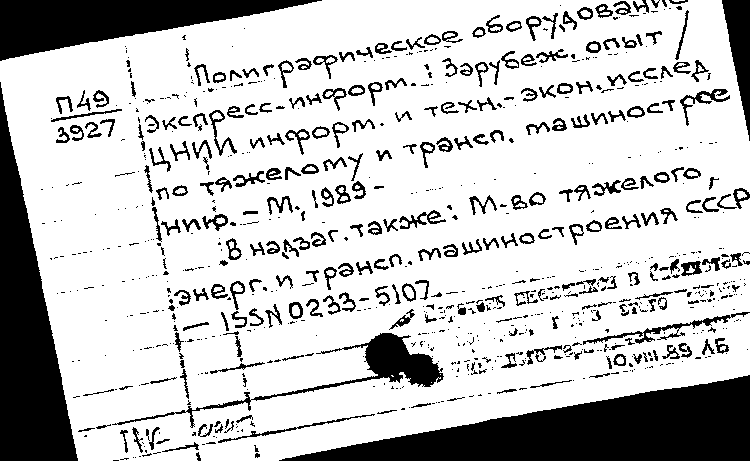 Полиграфическое оборудование
П49
3927
Экспресс-информ.: Зарубеж. опыт /
ЦНИИ информ. и техн.-экон. исслед.
по тяжелому и трансп. машинострое
нию. – М., 1989 –
В надзаг. также: М-во тяжелого,
энерг. и трансп. машиностроения СССР
– ISSN 0233-5107.
в
10.VIII.89 ЛБ